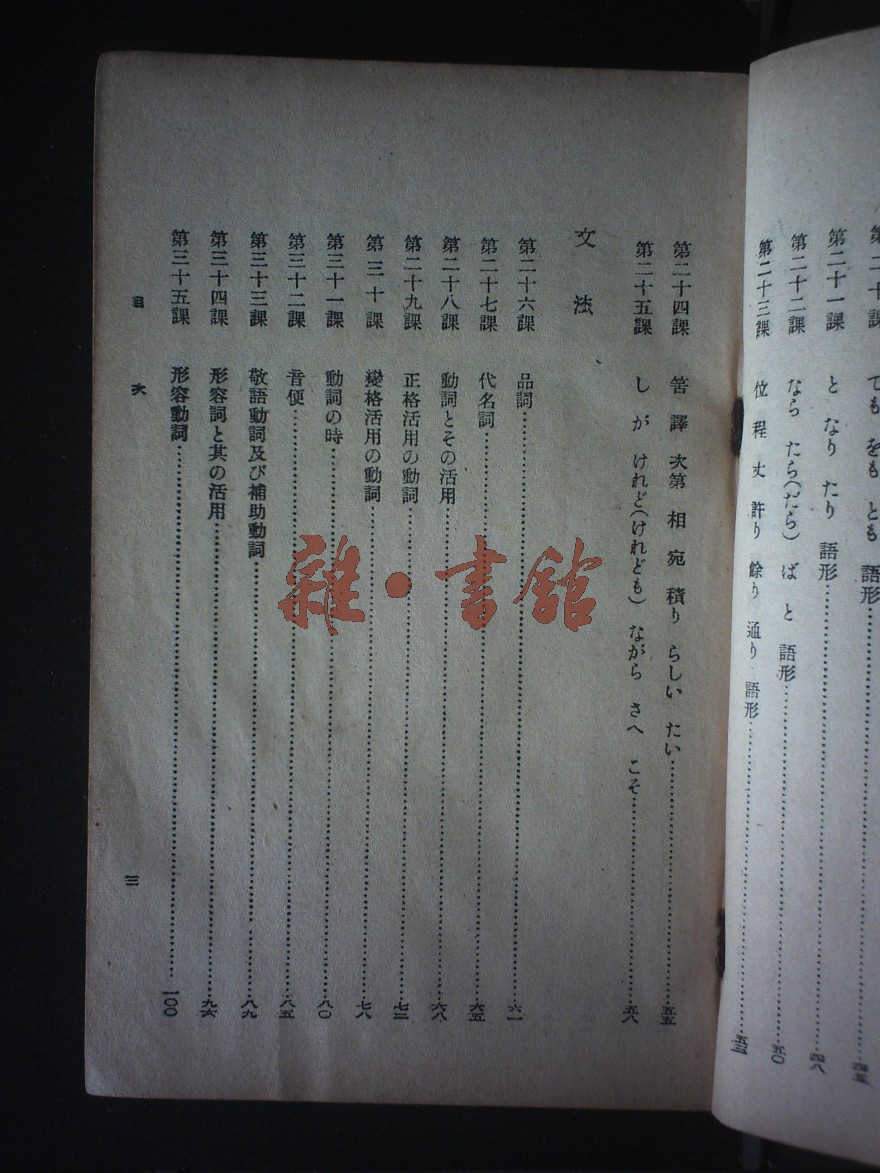 ても をも とも 語形……四五
第二十一課 と なり たり 語形……四八
第二十二課 なら たら(だら) ば と 語形……五〇
第二十三課 位 程 丈 許り 餘り 通り 語形……五三
第二十四課 筈 譯 次第 相 宛 積り らしい たい……五五
第二十五課 し が けれど(けれども) ながら さへ こそ……五八
文法
第二十六課 品詞……六一
第二十七課 代名詞……六五
第二十八課 動詞とその活用……六八
第二十九課 正格活用の動詞……七二
第三十課 變格活用の動詞……七八
第三十一課 動詞の時……八〇
第三十二課 音便……八五
第三十三課 敬語動詞及び補助動詞……八九
第三十四課 形容詞と其の活用……九六
第三十五課 形容動詞……一〇〇
目次
三
雜·書館